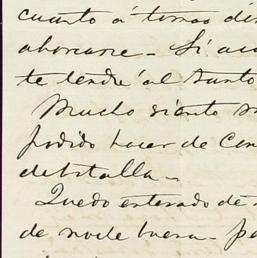 cuanto á tomar
ahorcarse - Si
te tendré al tanto
Mucho siento
podido hacer de
detalla -
Quedo enterado de
de node buena -